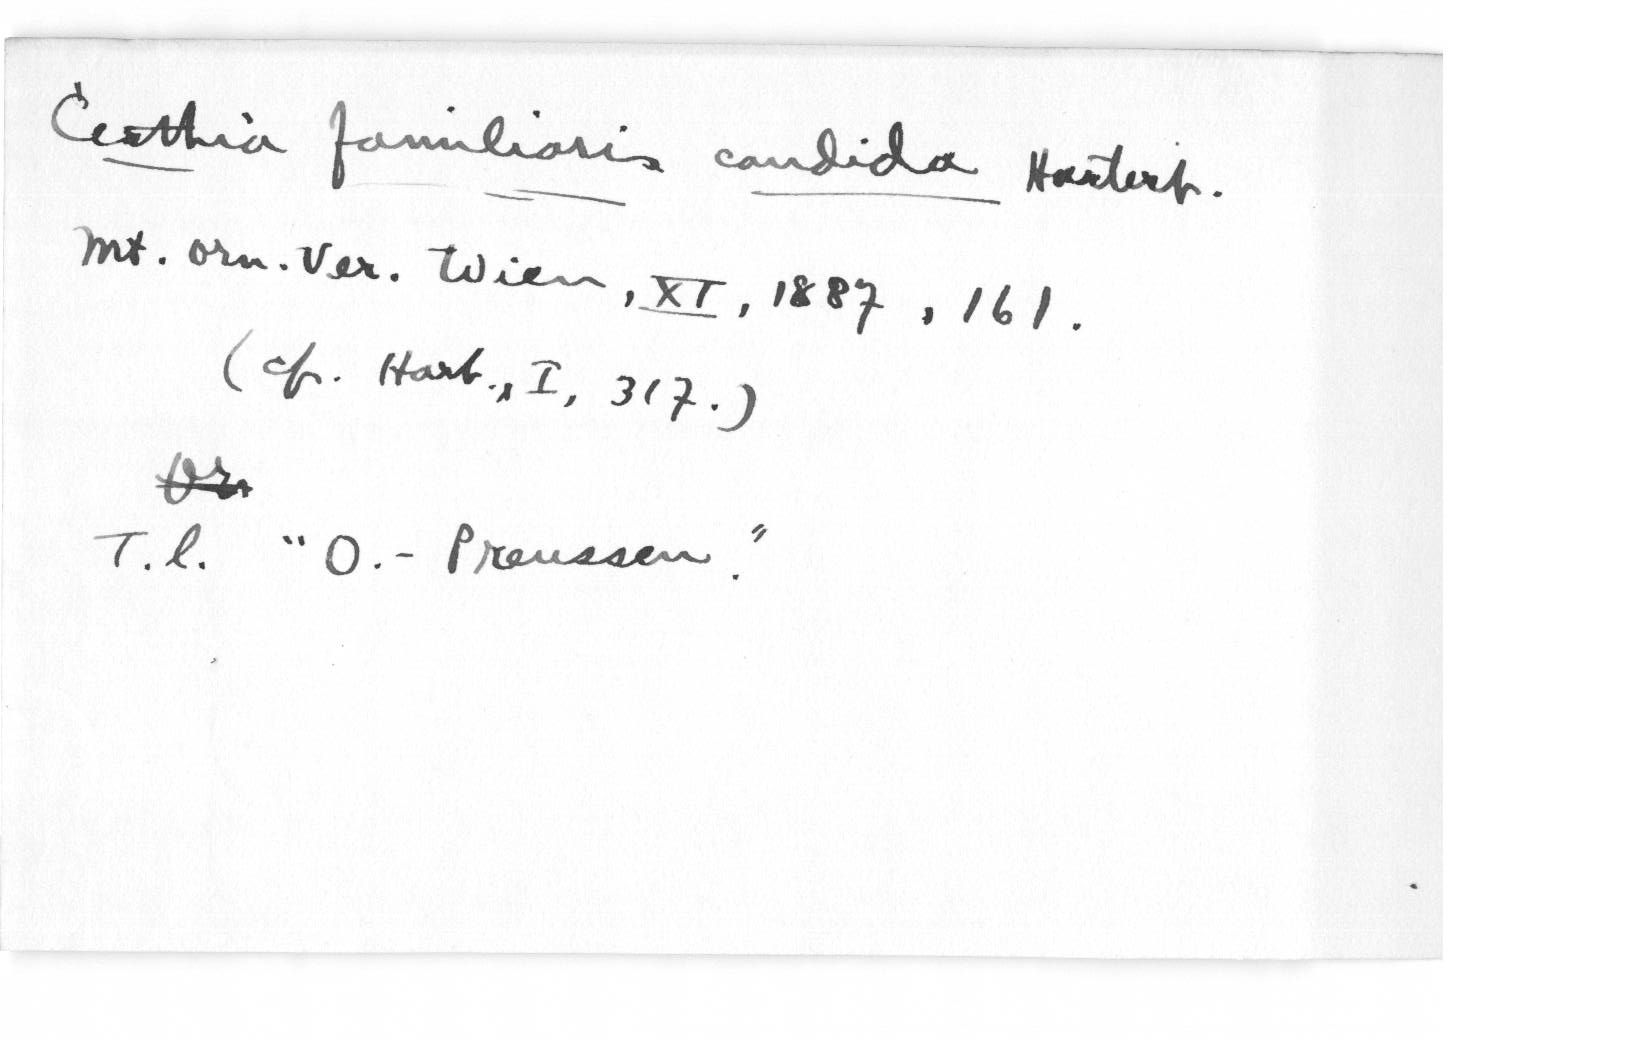 Certhia familiaris candida Hartert.
Mt. Orn. Ver. Wien, XI, 1887, 161.
(cf. Hart., I, 317.)
Or.
T.l. "O.- Preussen."